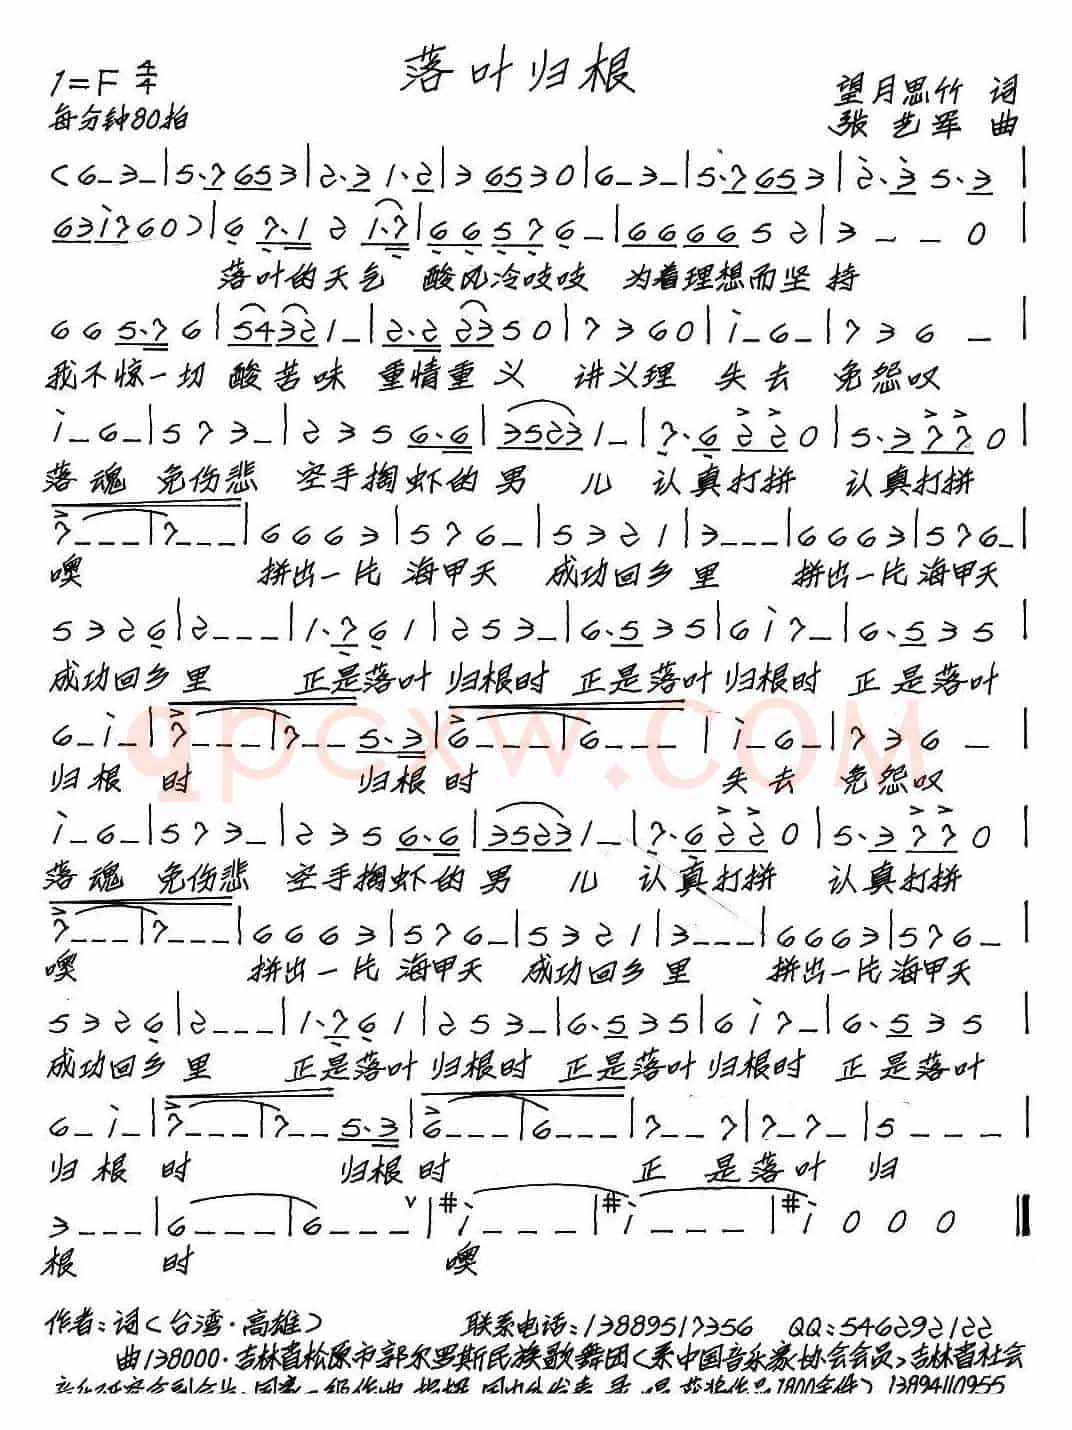 落叶归根
1=F 4/4
每分钟80拍
望月思竹 词
张艺军 曲
(6-3-|5·7653|2·31·2|36530|6-3-|5·7653|2·35·3|
63i760)|67·121·7|66576-|666652|3--0|
落叶的天气 酸风冷吱吱 为着理想而坚持
665·76|54321-|2·22350|7360|i-6-|736-|
我不惊一切 酸苦味 重情重义 讲义理 失去 免怨叹
i-6-|573-|2356·6|35231-|7·6220|5·3770|
落魂 免伤悲 空手掏虾的男 儿 认真打拼 认真打拼
7---|7---|6663|576-|5321|3---|6663|576-|
噢 拼出一片 海甲天 成功回乡里 拼出一片海甲天
5326|2---|1·761|253-|6·535|6i7-|6·535|
成功回乡里 正是落叶 归根时 正是落叶 归根时 正是落叶
6-i-|7---|7--5·3|6---|6---|i-6-|736-|
归根 时 归根时 失去 免怨叹
i-6-|573-|2356·6|35231-|7·6220|5·3770|
落魂 免伤悲 空手掏虾的男 儿 认真打拼 认真打拼
7---|7---|6663|576-|5321|3---|6663|576-|
噢 拼出一片 海甲天 成功回乡里 拼出一片海甲天
5326|2---|1·761|253-|6·535|6i7-|6·535|
成功回乡里 正是落叶 归根时 正是落叶 归根时 正是落叶
6-i-|7---|7--5·3|6---|6---|7--7|7-7-|5---|
归根 时 归根时 正 是落叶 归
3---|6---|6---∨|#i---|#i---|#i000‖
根 时 噢
qpcxw.COM
作者:词(台湾·高雄) 联系电话:13889517356 QQ:546292122
曲138000·吉林省松原市郭尔罗斯民族歌舞团(系中国音乐家协会会员)吉林省社会
13894110955